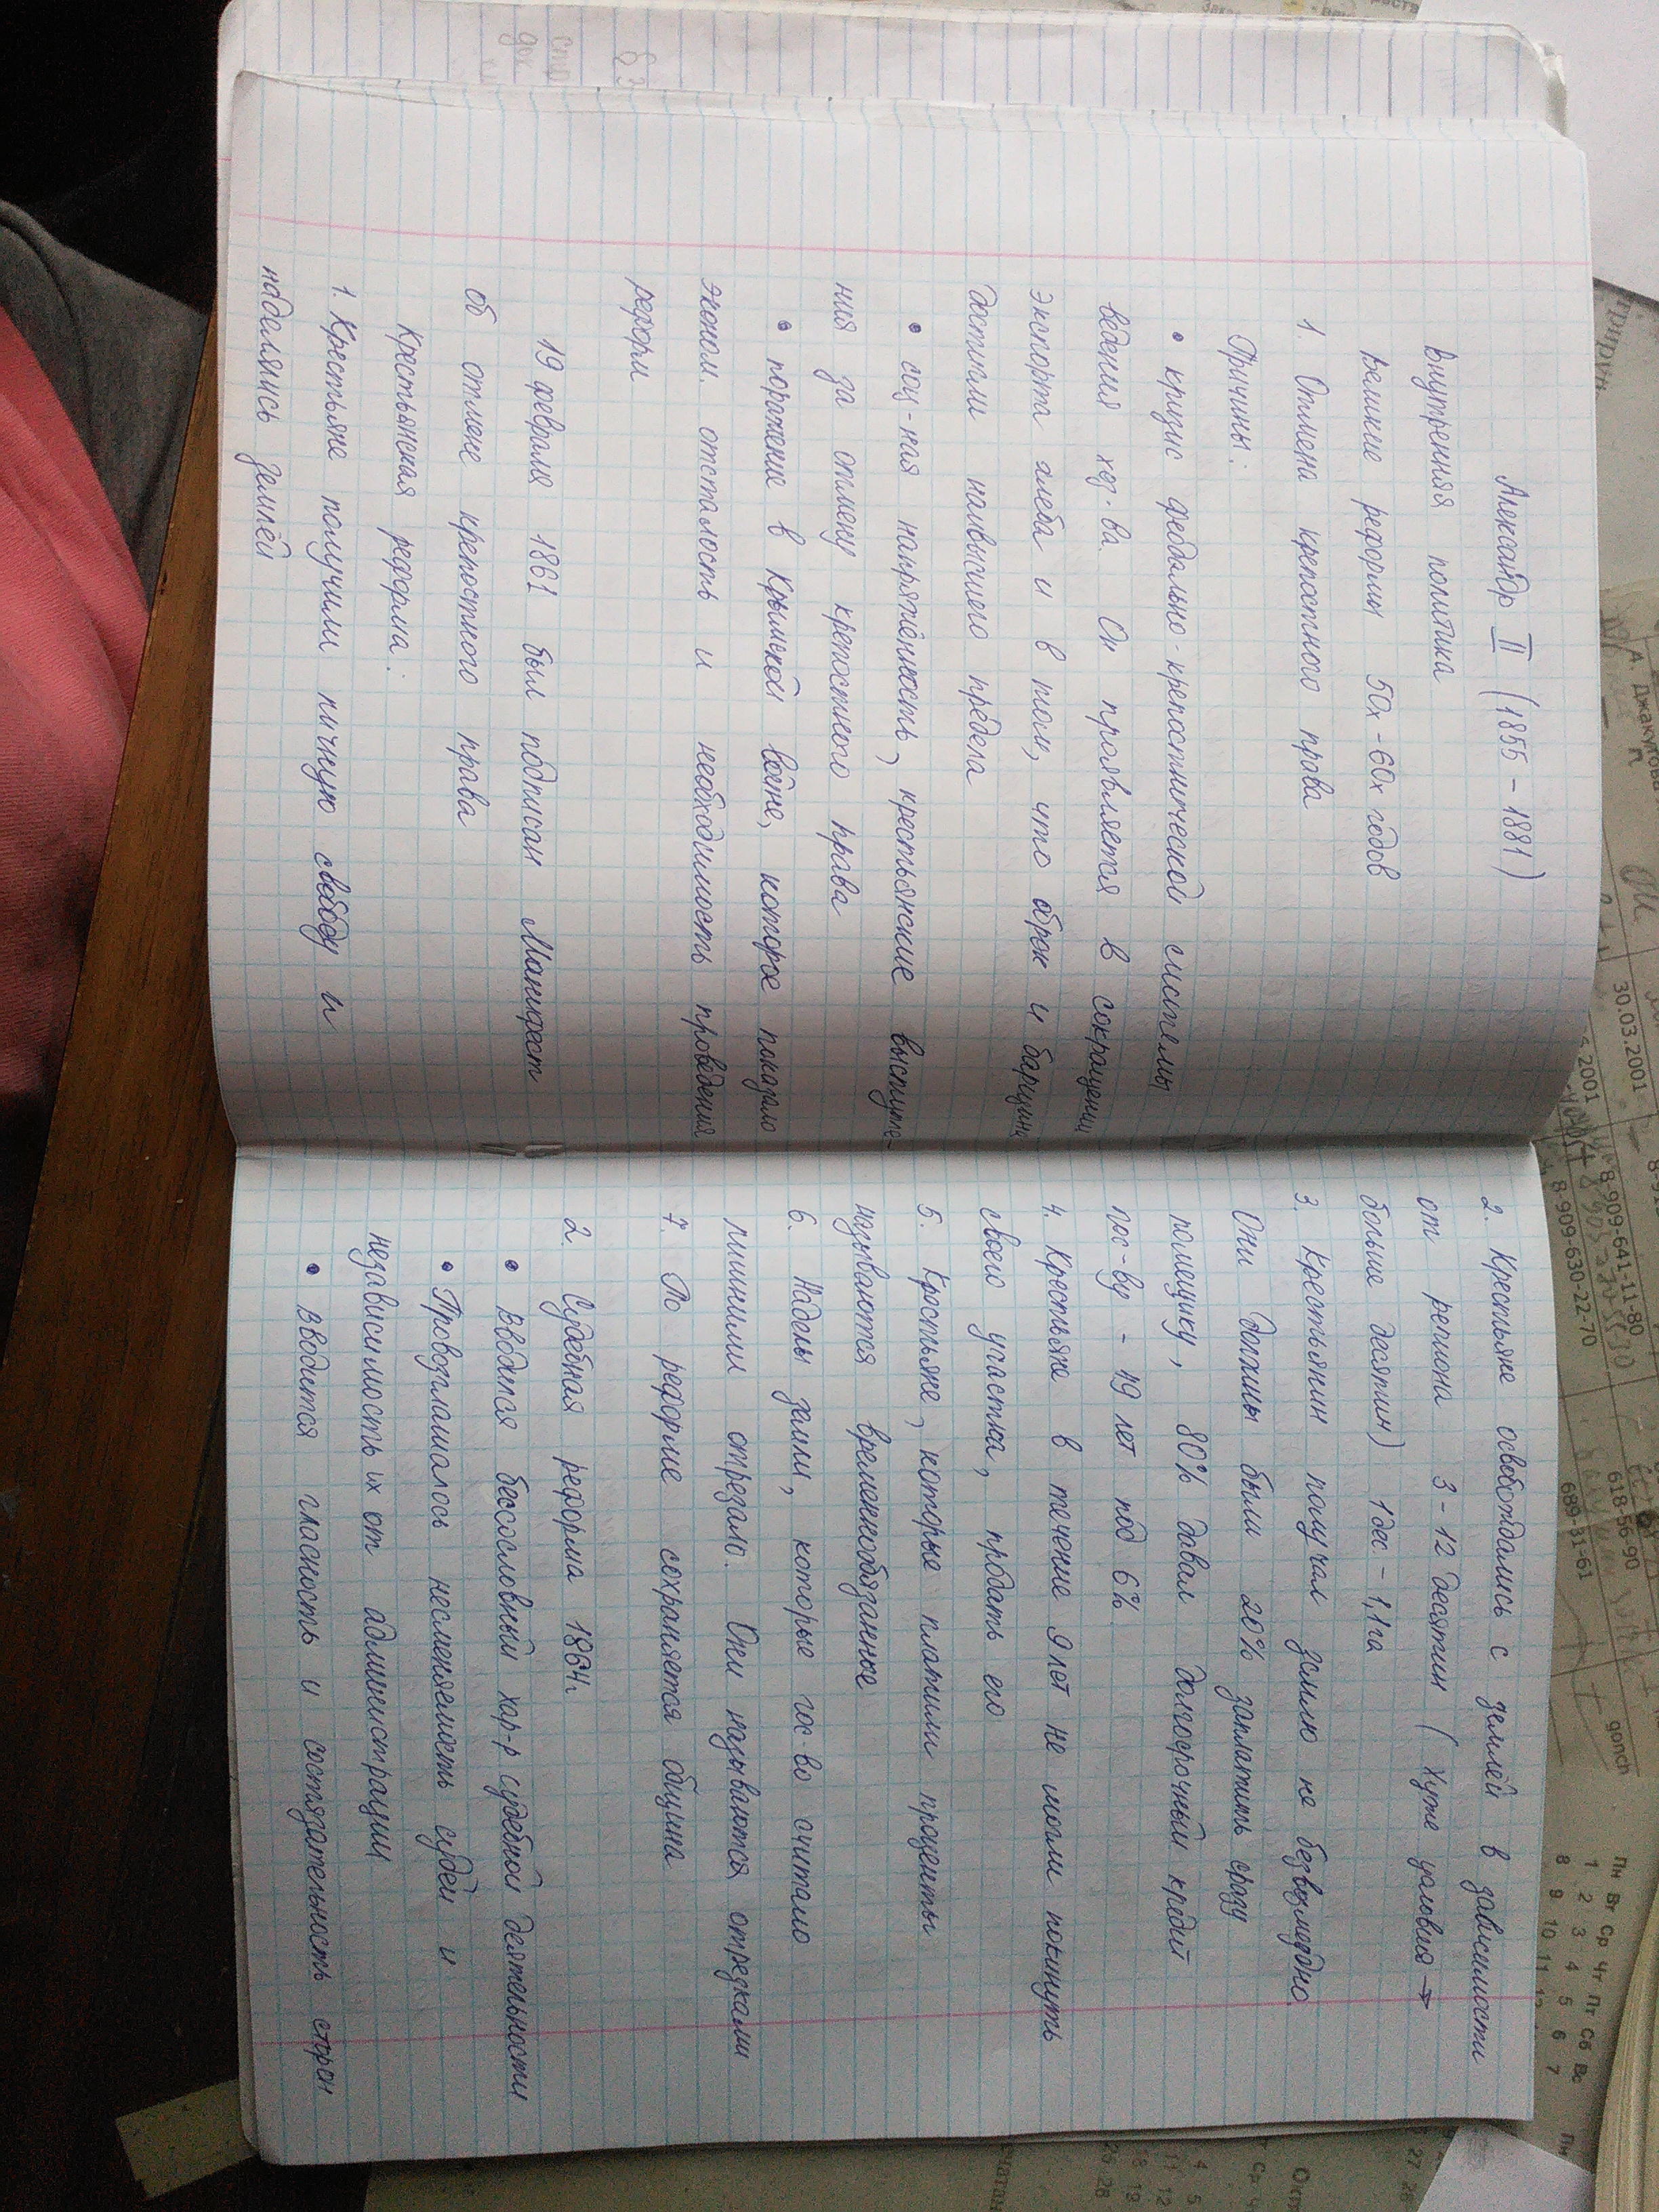 Александр II (1855 - 1881)
Внутренняя политика
Великие реформы 50х - 60х годов
1. Отмена крепостного права
Причины:
• кризис феодально-крепостнической системы
ведения хоз-ва. Он проявляется в сокращении
экспорта хлеба и в том, что оброк и барщина
достигли наивысшего предела
• соц-ная напряжённость, крестьянские выступле-
ния за отмену крепостного права
• поражение в Крымской войне, которое показало
эконом. отсталость и необходимость проведения
реформ
19 февраля 1861 был подписан Манифест
об отмене крепостного права
Крестьянская реформа:
1. Крестьяне получили личную свободу и
наделялись землёй
2. Крестьяне освобождались с землёй в зависимости
от региона 3-12 десятин ( Хуже условия →
больше десятин) 1дес - 1,1га
3. Крестьянин получал землю не безвозмездно.
Они должны были 20% заплатить сразу
помещику, 80% давал долгосрочный кредит
гос-ву - 49 лет под 6%
4. Крестьяне в течение 9 лет не могли покинуть
своего участка, продать его
5. Крестьяне, которые платили проценты
называются временнообязанные
6. Наделы земли, которые гос-во считало
лишними отрезало. Они называются отрезками
7. По реформе сохраняется община
2. Судебная реформа 1864г.
• Вводится бессословный хар-р судебной деятельности
• Провозглашалось несменяемость судей и
независимость их от администрации
• Вводится гласность и состязательность сторон
30.03.2001
8-909-641-11-80
8-909-630-22-70
618-56-90
689-31-61
gonch
Пн Вт Ср Чт Пт Сб Вс
1 2 3 4 5 6 7
8 9 10 11 12